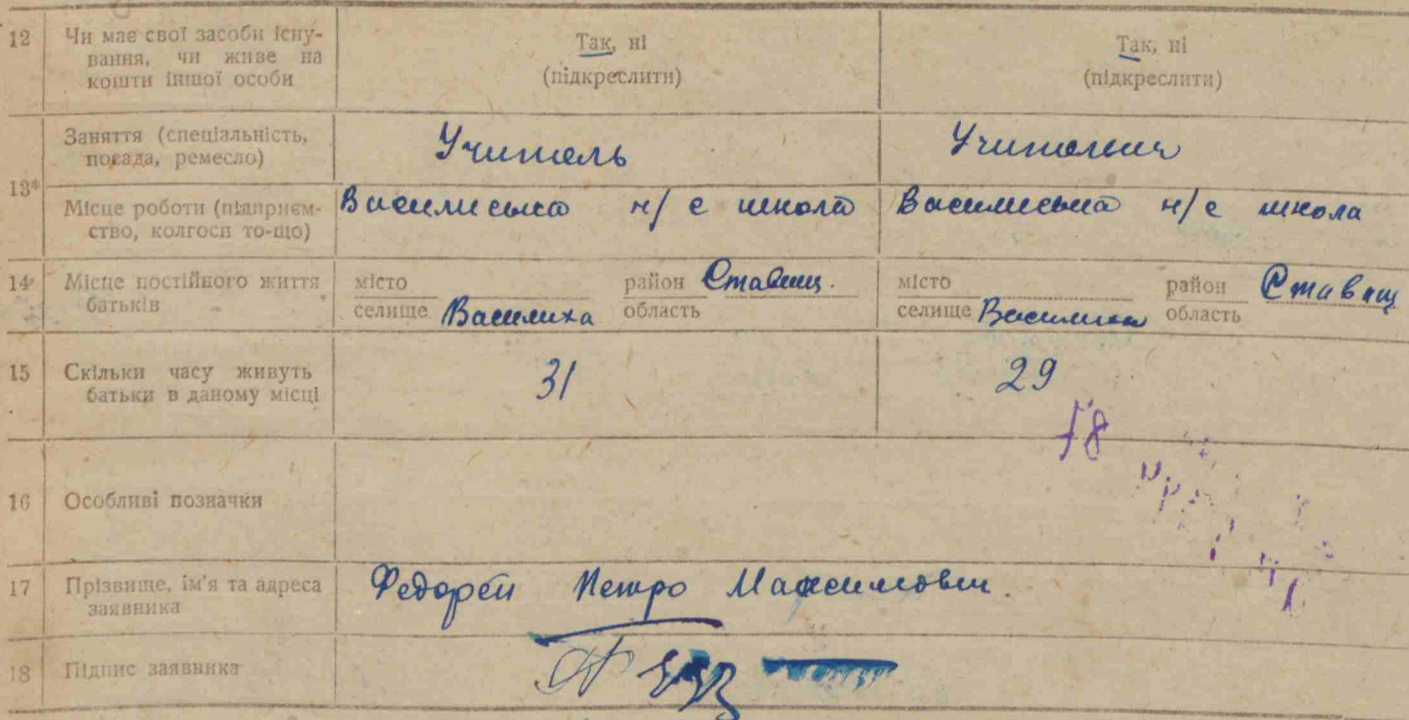 12 Чи має свої засоби існу-
вання, чи живе на
кошти іншої особи
Так, ні
(підкреслити)
Так, ні
(підкреслити)
13*
Заняття (спеціальність,
посада, ремесло)
Учитель
Учителька
Місце роботи (підприєм-
ство, колгосп то-що)
Василиська н/с школа
Василиська н/с школа
14 Місце постійного життя
батьків
місто район Ставищ.
селище Василиха область
місто район Ставищ
селище Василиха область
15 Скільки часу живуть
батьки в даному місці
31
29
16 Особливі позначки
17 Прізвище, ім'я та адреса
заявника
Петро Максимович.
18 Підпис заявника